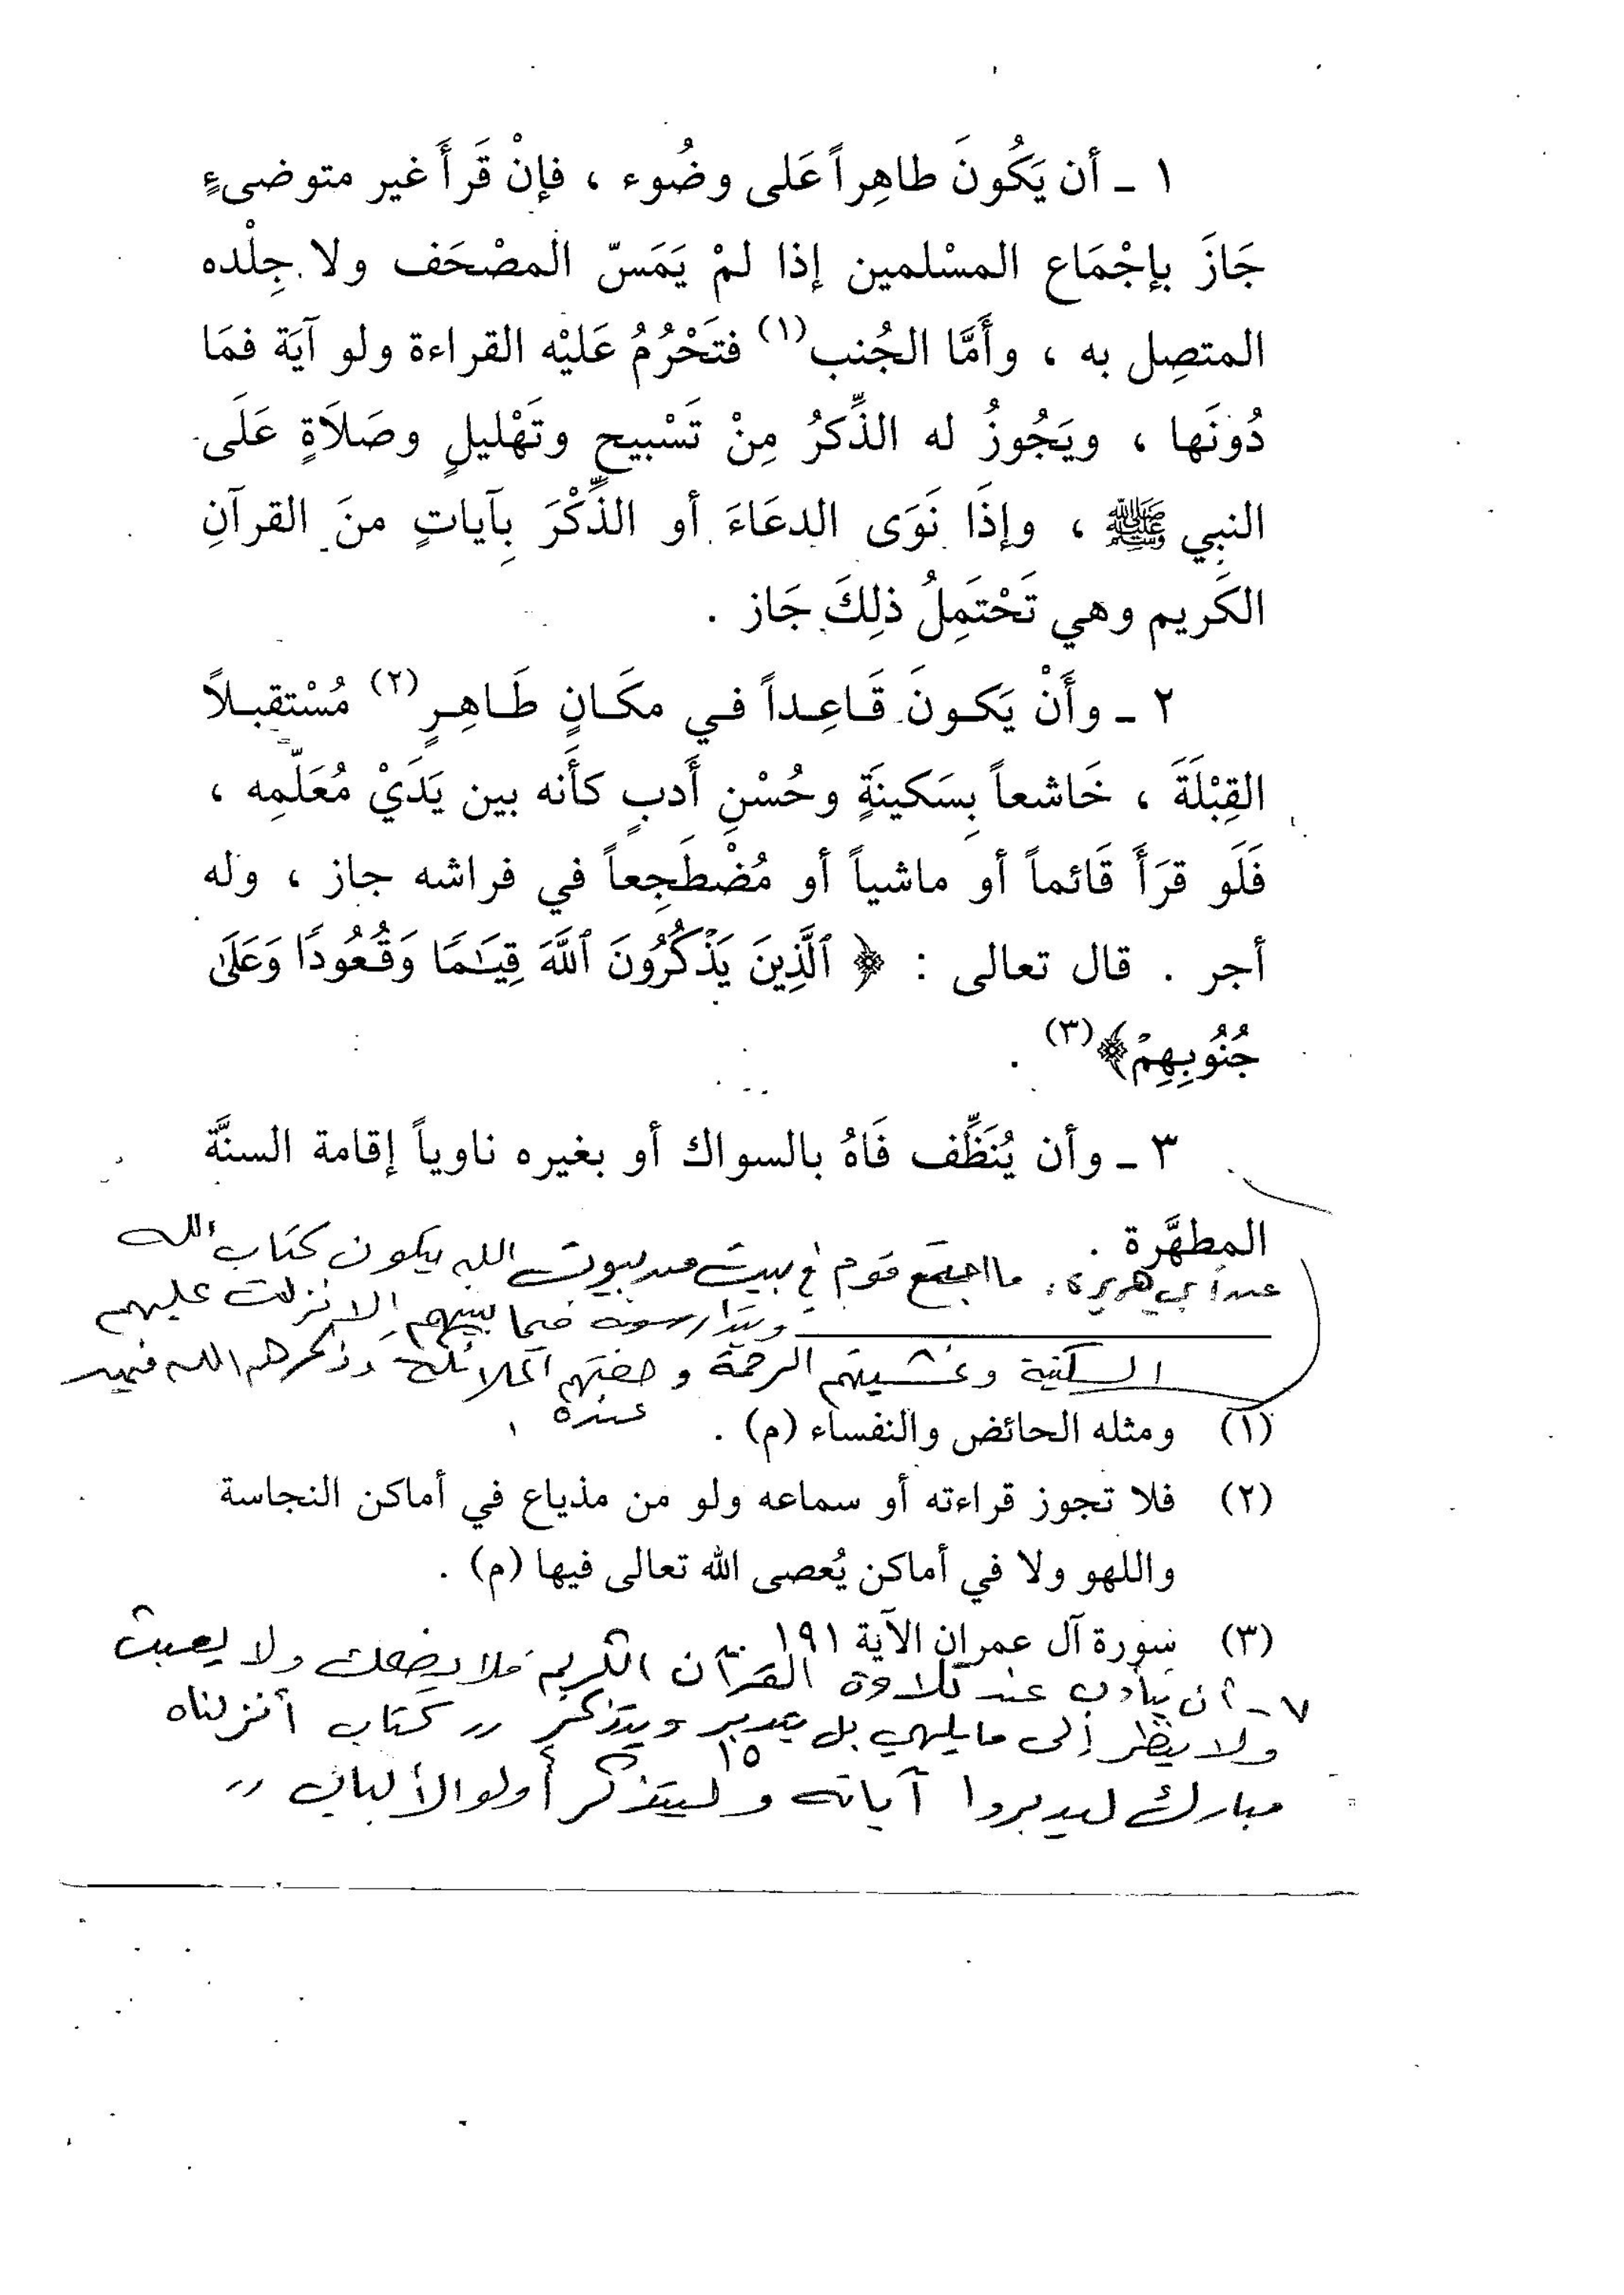 ١ ـ أن يَكُونَ طاهِراً عَلى وضُوء ، فإنْ قَرأَ غير متوضىءٍ
جَازَ بإجْمَاع المسْلمين إذا لمْ يَمَسّ المصْحَف ولا جِلْده
المتصِل به ، وأَمَّا الجُنب(١) فتَحْرُمُ عَليْه القراءة ولو آيَة فمَا
دُونَها ، ويَجُوزُ له الذِّكرُ مِنْ تَسْبيحٍ وتَهْليلٍ وصَلَاةٍ عَلَى
النبِي ﷺ ، وإذَا نَوَى الدعَاءَ أو الذِّكْرَ بِآياتٍ منَ القرآنِ
الكَريم وهي تَحْتَمِلُ ذلِكَ جَاز .
٢ ـ وأَنْ يَكونَ قَاعِداً في مكَانٍ طَاهِرٍ(٢) مُسْتقبلاً
القِبْلَةَ ، خَاشعاً بِسَكينَةٍ وحُسْنِ أَدبٍ كأَنه بين يَدَيْ مُعَلّمِه ،
فَلَو قرَأَ قَائماً أو ماشياً أو مُضْطَجِعاً في فراشه جاز ، وله
أجر . قال تعالى : ﴿ ٱلَّذِينَ يَذْكُرُونَ ٱللَّهَ قِيَٰمًا وَقُعُودًا وَعَلَىٰ
جُنُوبِهِمْ﴾(٣) .
٣ ـ وأن يُنَظِّف فَاهُ بالسواك أو بغيره ناوياً إقامة السنَّة
المطهَّرة .
عن أبي هريرة: ما اجتمع قوم في بيت من بيوت الله يتلون كتاب الله
ويتدارسونه فيما بينهم إلا نزلت عليهم
السكينة وغشيتهم الرحمة وحفتهم الملائكة وذكرهم الله فيمن
عنده
(١) ومثله الحائض والنفساء (م) .
(٢) فلا تجوز قراءته أو سماعه ولو من مذياع في أماكن النجاسة
واللهو ولا في أماكن يُعصى الله تعالى فيها (م) .
(٣) سورة آل عمران الآية ١٩١
٧ ـ أن يتأدب عند تلاوة القرآن الكريم فلا يضحك ولا يعبث
ولا ينظر إلى ما يلهي بل يتدبر ويتذكر ,, كتاب أنزلناه
مبارك ليدبروا آياته وليتذكر أولو الألباب ,,